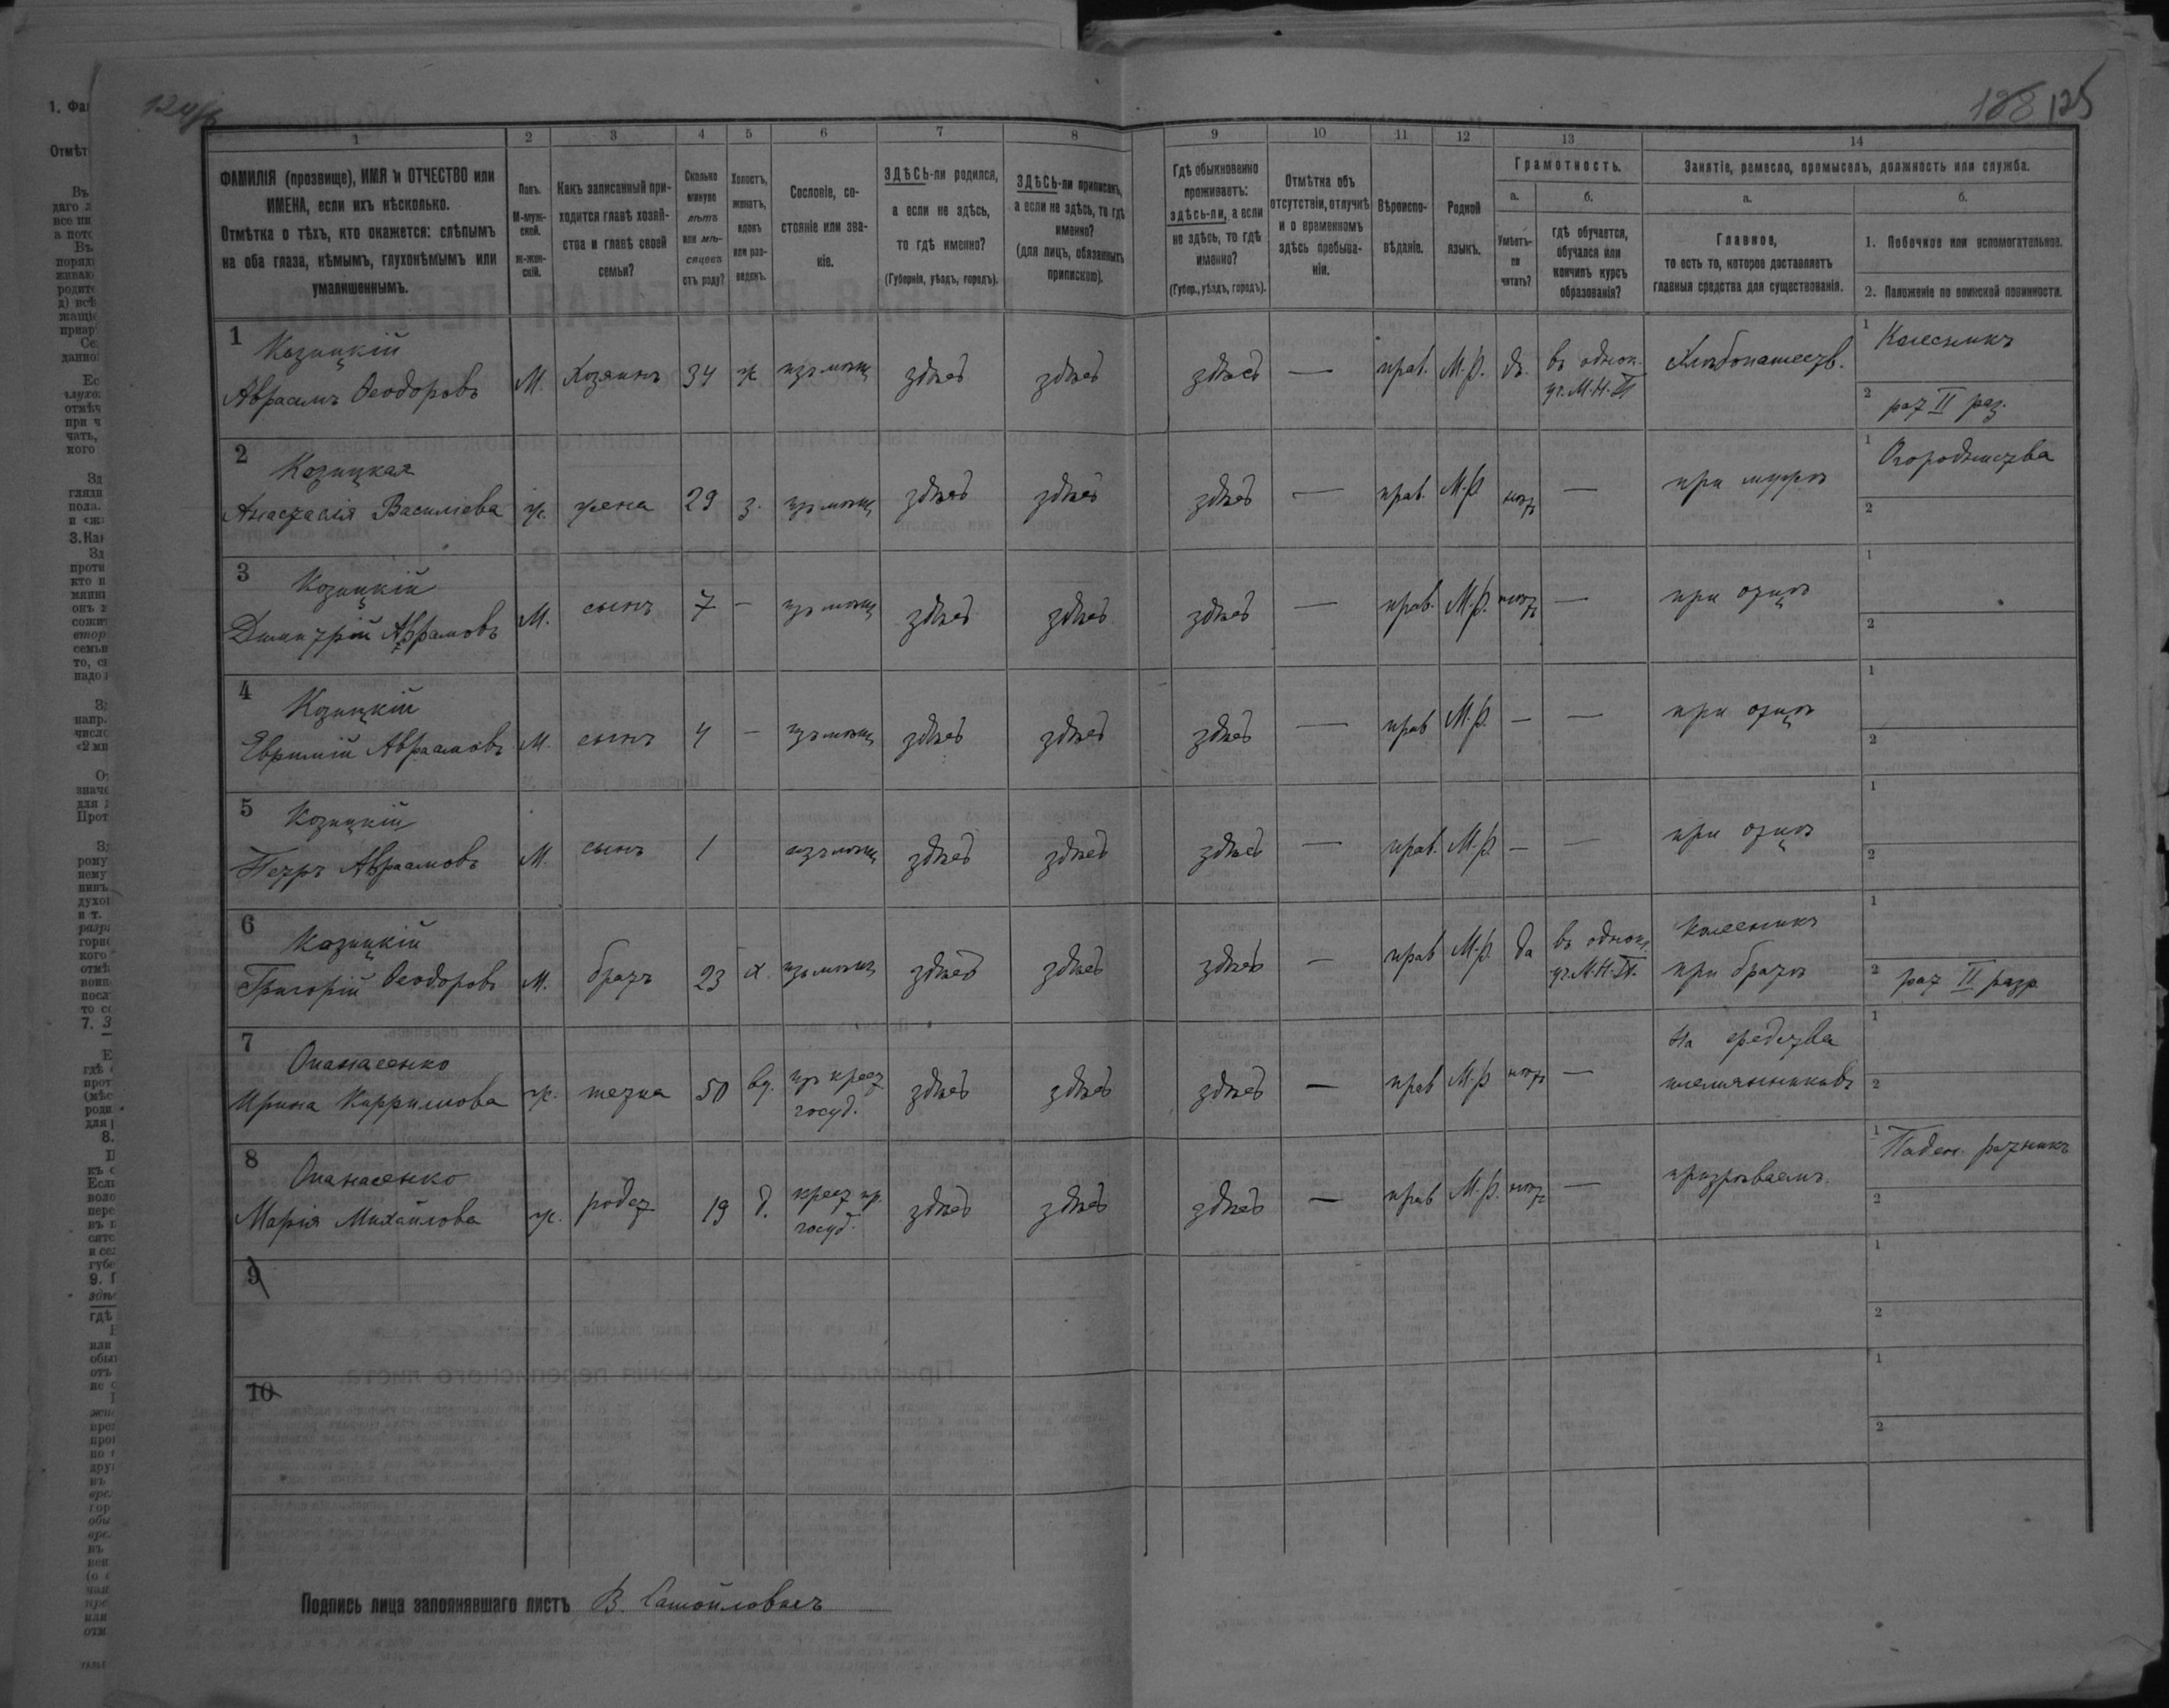 124 об
128 125
1 2 3 4 5 6 7 8 9 10 11 12 13 14
ФАМИЛІЯ (прозвище), ИМЯ и ОТЧЕСТВО или
ИМЕНА, если ихъ нѣсколько.
Отмѣтка о тѣхъ, кто окажется: слѣпымъ
на оба глаза, нѣмымъ, глухонѣмымъ или
умалишеннымъ.
Полъ.
М-муж-
ской.
ж-жен-
скій.
Какъ записанный при-
ходится главѣ хозяй-
ства и главѣ своей
семьи?
Сколько
минуло
лѣтъ
или мѣ-
сяцевъ
отъ роду?
Холостъ,
женатъ,
вдовъ
или раз-
веденъ.
Сословіе, со-
стояніе или зва-
ніе.
ЗДѢСЬ-ли родился,
а если не здѣсь,
то гдѣ именно?
(Губернія, уѣздъ, городъ).
ЗДѢСЬ-ли приписанъ,
а если не здѣсь, то гдѣ
именно?
(для лицъ, обязанныхъ
припискою).
Гдѣ обыкновенно
проживаетъ:
здѣсь-ли, а если
не здѣсь, то гдѣ
именно?
(Губер., уѣздъ, городъ).
Отмѣтка объ
отсутствіи, отлучкѣ
и о временномъ
здѣсь пребыва-
ніи.
Вѣроиспо-
вѣданіе.
Родной
языкъ.
Грамотность.
а.
Умѣетъ-
ли
читать?
б.
гдѣ обучается,
обучался или
кончилъ курсъ
образованія?
Занятіе, ремесло, промыселъ, должность или служба.
а.
Главное,
то есть то, которое доставляетъ
главныя средства для существованія.
б.
1. Побочное или вспомогательное.
2. Положеніе по воинской повинности.
1 Козицкій
Авраамъ Ѳеодоровъ М. Хозяинъ 34 ж изъ мѣщ здѣсь здѣсь здѣсь — прав. М.Р. да въ однок.
уч. М.Н.П Хлѣбопашеств. 1 Колесникъ
2 рат II раз.
2 Козицкая
Анастасія Василіева ж. жена 29 з. изъ мѣщ здѣсь здѣсь здѣсь — прав. М.Р нѣтъ — при мужѣ 1 Огородничества
2
3 Козицкій
Димитрій Аврамовъ М. сынъ 7 — изъ мѣщ здѣсь здѣсь здѣсь — прав. М.Р. нѣтъ — при отцѣ 1
2
4 Козицкій
Евфимій Авраамовъ М. сынъ 4 — изъ мѣщ здѣсь здѣсь здѣсь — прав М.Р. — — при отцѣ 1
2
5 Козицкій
Петръ Авраамовъ М. сынъ 1 изъ мѣщ здѣсь здѣсь здѣсь — прав. М.Р. — — при отцѣ 1
2
6 Козицкій
Григорій Ѳеодоровъ М. братъ 23 х. изъ мѣщ здѣсь здѣсь здѣсь — прав М.Р. да въ однок.
уч. М.Н.П. Колесникъ
при братѣ 1
2 рат II разр
7 Опанасенко
Ирина Каррилова ж. тетка 50 вд. изъ крест
госуд. здѣсь здѣсь здѣсь — прав М.Р нѣтъ — На средства
племянниковъ 1
2
8 Опанасенко
Марія Михайлова ж. родст 19 д. крест изъ
госуд. здѣсь здѣсь здѣсь — прав М.Р. нѣтъ — призрѣваемъ. 1
2
9 1
2
10 1
2
Подпись лица заполнявшаго листъ В. Самойловичъ